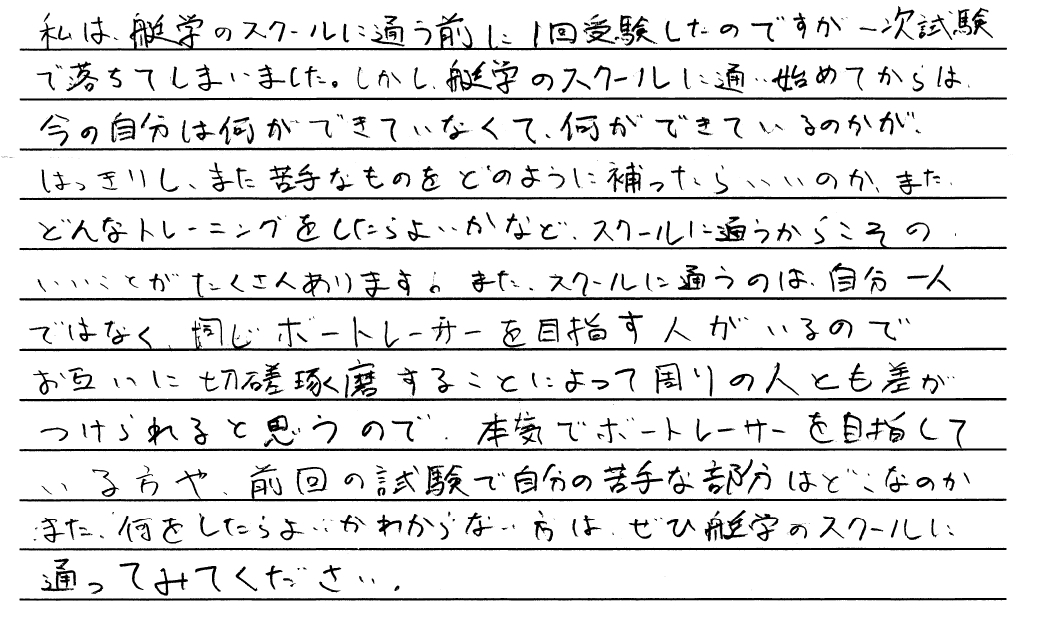 私は、艇学のスクールに通う前に1回受験したのですが一次試験
で落ちてしまいました。しかし、艇学のスクールに通い始めてからは、
今の自分は何ができていなくて、何ができているのかが、
はっきりし、また苦手なものをどのように補ったらいいのか、また、
どんなトレーニングをしたらよいかなど、スクールに通うからこその
いいことがたくさんあります。また、スクールに通うのは、自分一人
ではなく、同じボートレーサーを目指す人がいるので
お互いに切磋琢磨することによって周りの人とも差が
つけられると思うので、本気でボートレーサーを目指して
いる方や、前回の試験で自分の苦手な部分はどこなのか
また、何をしたらよいかわからない方は、ぜひ艇学のスクールに
通ってみてください。